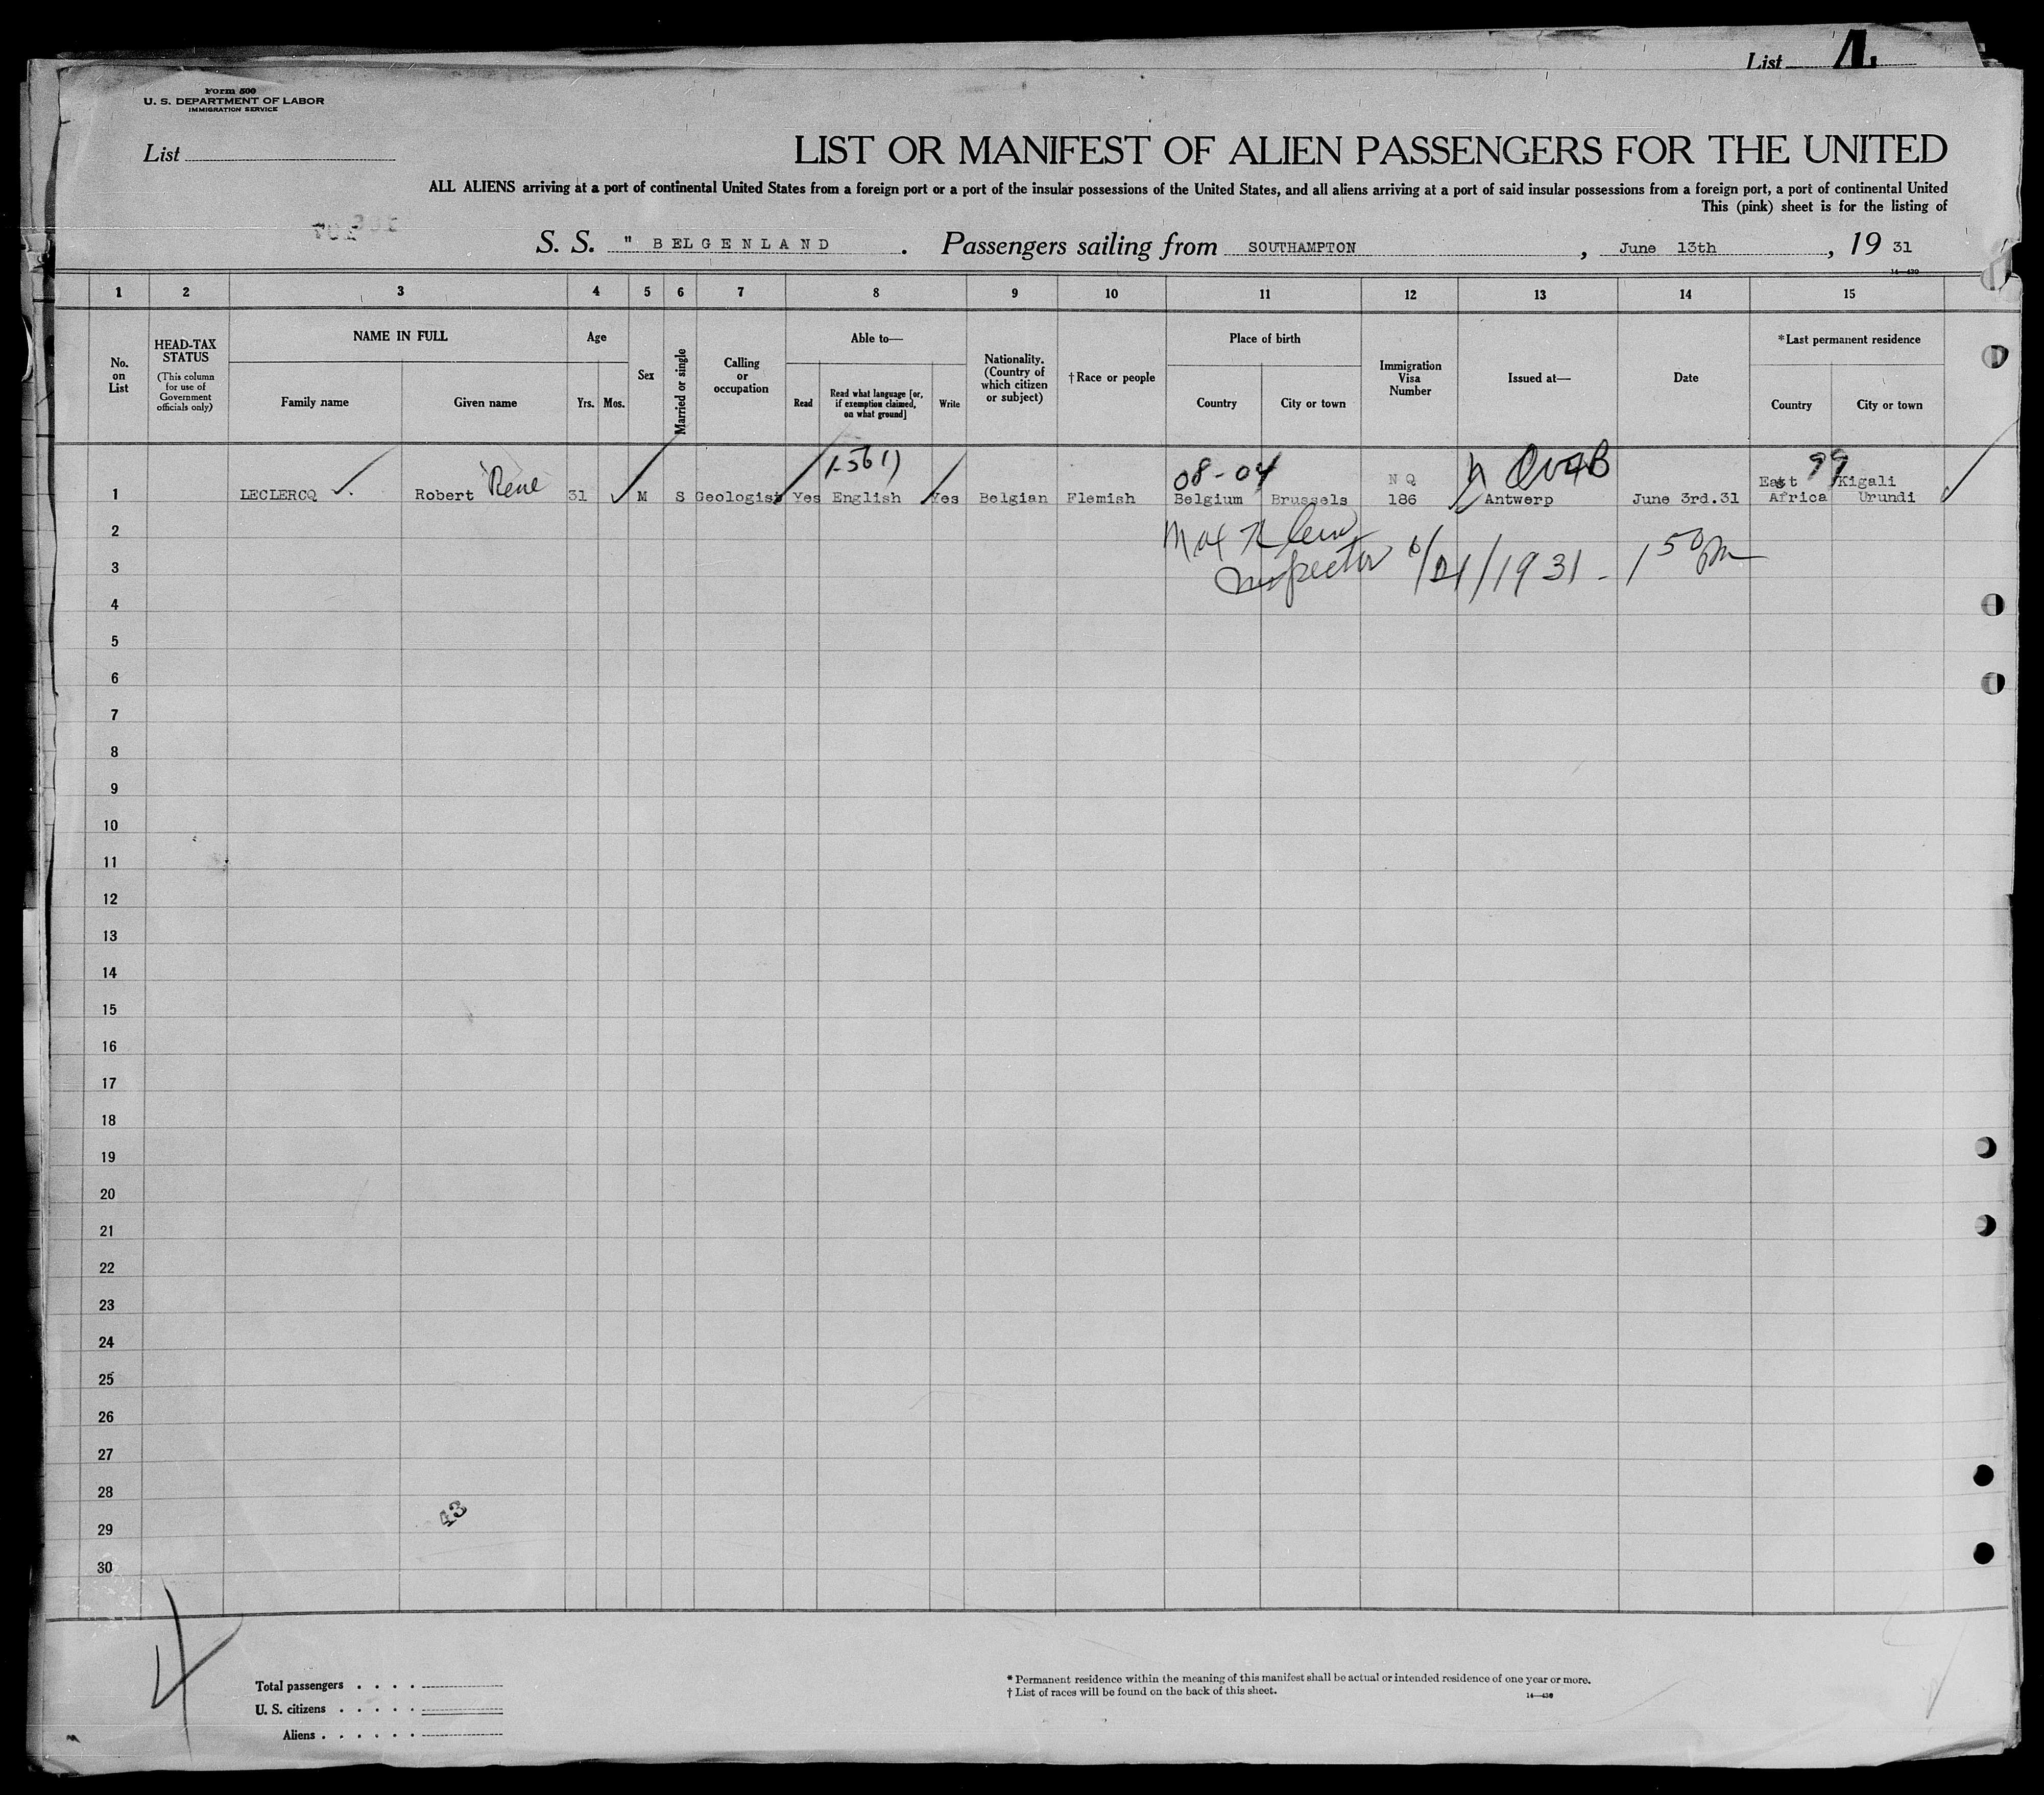 List 4
Form 500
U. S. DEPARTMENT OF LABOR
IMMIGRATION SERVICE
List
LIST OR MANIFEST OF ALIEN PASSENGERS FOR THE UNITED
ALL ALIENS arriving at a port of continental United States from a foreign port or a port of the insular possessions of the United States, and all aliens arriving at a port of said insular possessions from a foreign port, a port of continental United
This (pink) sheet is for the listing of
S. S. " BELGENLAND . Passengers sailing from SOUTHAMPTON , June 13th , 19 31
14—430
1 2 3 4 5 6 7 8 9 10 11 12 13 14 15
No. on List
HEAD-TAX STATUS
(This column for use of Government officials only)
NAME IN FULL
Family name
Given name
Age
Yrs. Mos.
Sex
Married or single
Calling or occupation
Able to—
Read
Read what language [or, if exemption claimed, on what ground]
Write
Nationality. (Country of which citizen or subject)
†Race or people
Place of birth
Country
City or town
Immigration Visa Number
Issued at—
Date
*Last permanent residence
Country
City or town
08-04
99
1 LECLERCQ Robert René 31 M S Geologist Yes English Yes Belgian Flemish Belgium Brussels N Q 186 Antwerp June 3rd.31 East Africa Kigali Urundi
2
Inspector 6/21/1931 - 1 50 pm
3
4
5
6
7
8
9
10
11
12
13
14
15
16
17
18
19
20
21
22
23
24
25
26
27
28
43
29
30
4
Total passengers
U. S. citizens
Aliens
* Permanent residence within the meaning of this manifest shall be actual or intended residence of one year or more.
† List of races will be found on the back of this sheet.
14—430